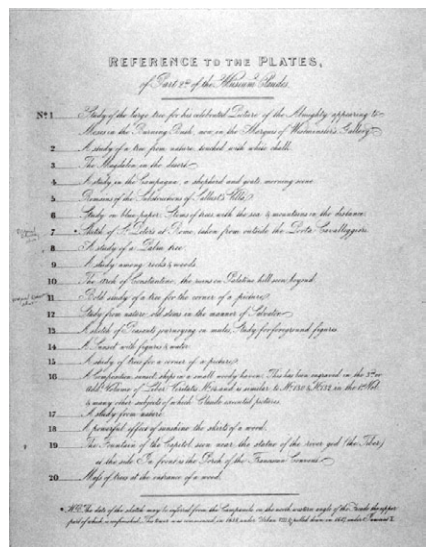 REFERENCE TO THE PLATES,
of Part 2nd of the Museum Claudes.
No. 1 Study of the large tree for his celebrated Picture of the Almighty appearing to
Moses in the Burning Bush, now in the Marquis of Westminster's Gallery
2 A study of a tree from nature, touched with white chalk.
3 The Magdalen in the desert.
4 A study in the Campagna, a shepherd and goats, morning scene.
5 Remains of the Substructions of Sallust's Villa
6 Study on blue paper. Stems of trees with the sea & mountains in the distance.
7 Sketch of St. Peters at Rome, taken from outside the Porta Cavalleggieri.
8 A study of a Palm tree.
9 A study among rocks & woods.
10 The Arch of Constantine, the ruins on Palatine hill seen beyond.
11 Bold study of a tree for the corner of a picture
12 Study from nature, old stems in the manner of Salvator
13 A sketch of Peasants journeying on mules, Study for foreground figures.
14 A Sunset with figures & water.
15 A study of trees for a corner of a picture
16 A Composition, sunset, ships in a small woody haven. This has been engraved in the 3rd or
addl. Volume of Liber Veritatis No. and is similar to No. 130 & No. 132 in the 1st Vol.
& many other subjects of which Claude executed pictures.
17 A study from nature.
18 A powerful effect of sunshine, the skirts of a wood.
19 The Fountain of the Capitol, seen near the statue of the river god (the Tiber)
at the side. In front is the Porch of the Convent
20 Mass of trees at the entrance of a wood.
N.B. The date of the sketch may be inferred from the Campanile on the north western angle of the Facade, the upper
part of which is unfinished. The tower was commenced in 1638 under Urban VIII & pulled down in 1647 under Innocent X.